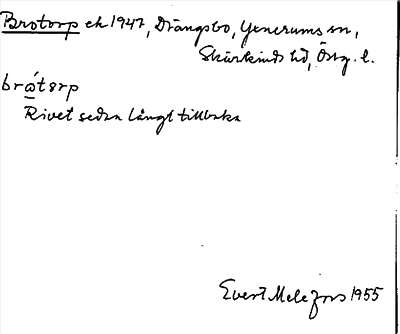 Brotorp ek 1947, Drängsbo, Yxnerums sn,
Skärkinds hd, Östg. l.
brótɘrp
Rivet sedan långt tillbaka
Evert Melefors 1955